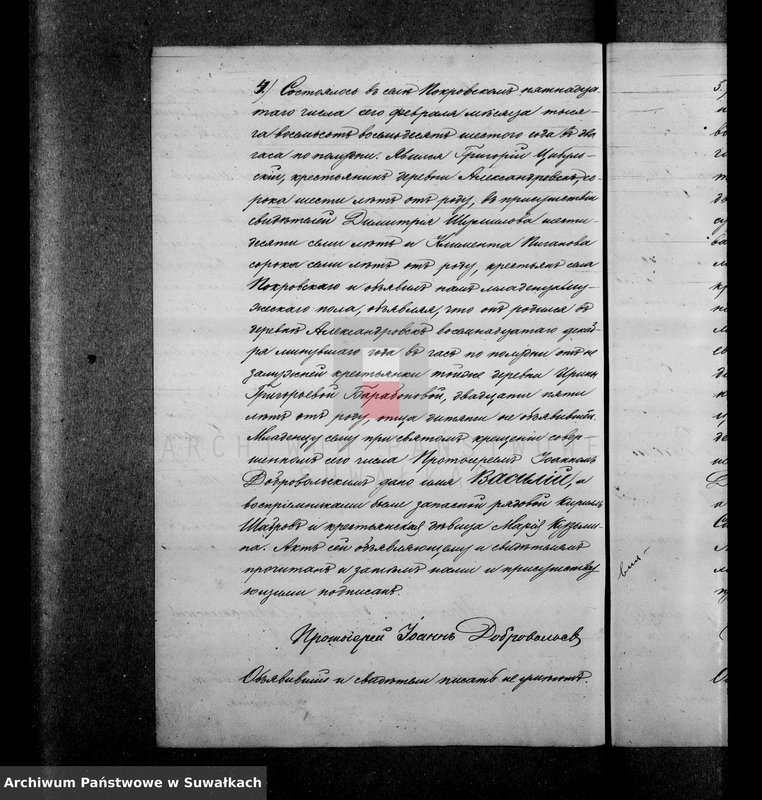 4) Состоялось въ селѣ Покровскомъ пятнадца
таго числа сего февраля мѣсяца тыся-
ча восемьсотъ восемьдесятъ шестого года въ два
часа по полудни. Явился Григорій Цибуль-
скій, крестьянинъ деревни Александровскъ, со-
рока шести лѣтъ отъ роду, въ присутствіи
свидѣтелей Димитрія Шурмилова шести-
десяти семи лѣтъ и Климента Пиганова
сорока семи лѣтъ отъ роду, крестьянъ села
Покровскаго и объявилъ намъ младенца му-
жескаго пола, объявляя, что онъ родился въ
деревнѣ Александровскъ восемнадцатаго декаб-
ря минувшаго года въ часъ по полудни отъ не
замужней крестьянки тойже деревни Ирины
Григорьевой Барабоновой, двадцати пяти
лѣтъ отъ роду, отца дитяти не объявившей.
Младенцу сему при святомъ крещеніи совер-
шенномъ сего числа Протоіереемъ Іоанномъ
Добровольскимъ дано имя Василій, а
воспріемниками были запасной рядовой Кириллъ
Шатровъ и крестьянская дѣвица Марія Кузьми-
на. Актъ сей объявляющему и свидѣтелямъ
прочитанъ и затѣмъ нами и присутству
ющими подписанъ.
Протоіерей Іоаннъ Добровольскій
Объявившій и свидѣтели писать не умѣютъ.
ARCHIWUM PAŃSTWOWE
SUWAŁKACH
Archiwum Państwowe w Suwałkach